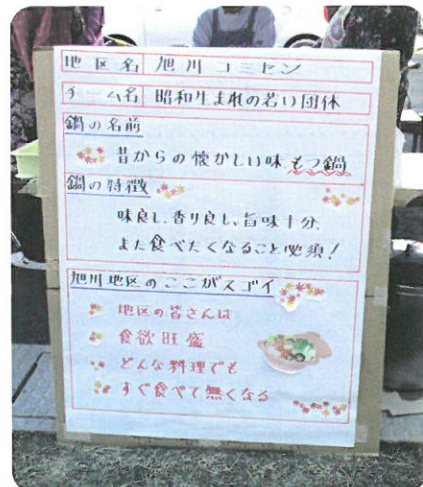 地区名 旭川コミセン
チーム名 昭和生まれの若い団体
鍋の名前
昔からの懐かしい味もつ鍋
鍋の特徴
味良し、香り良し、旨味十分、
また食べたくなること必須!
旭川地区のここがスゴイ
地区の皆さんは
食欲旺盛
どんな料理でも
すぐ食べて無くなる